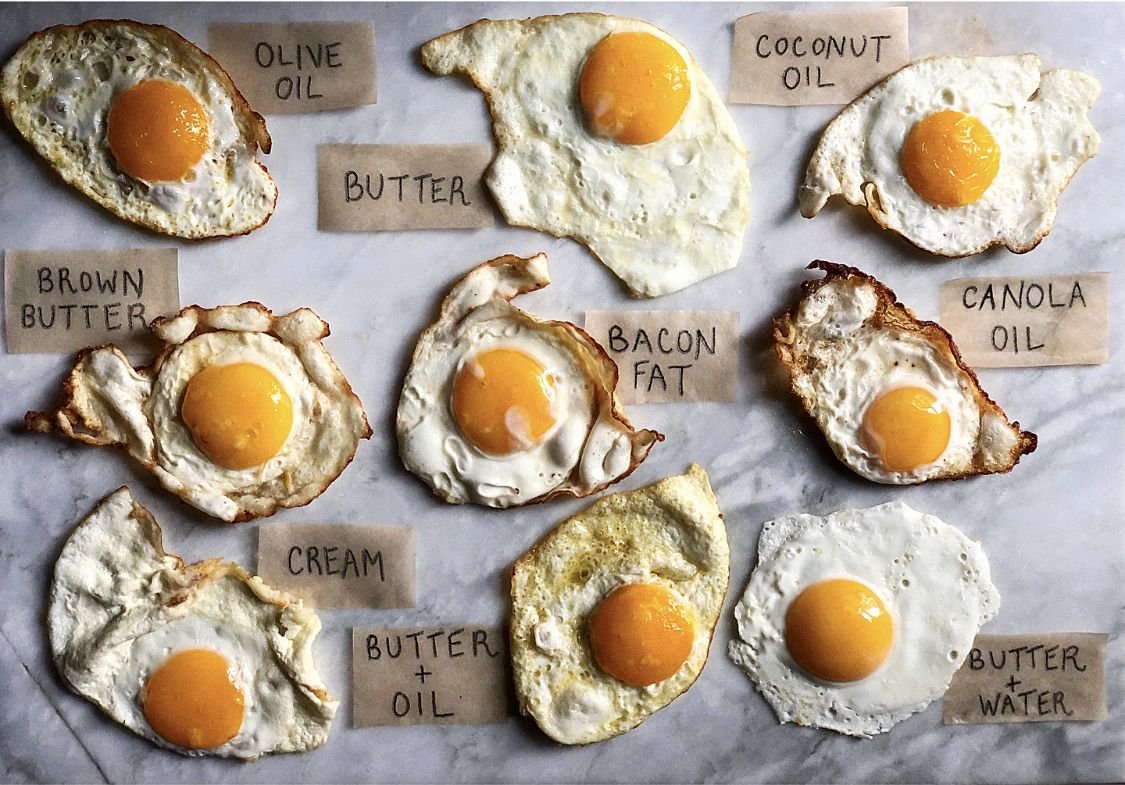 OLIVE
OIL
BUTTER
COCONUT
OIL
BROWN
BUTTER
BACON
FAT
CANOLA
OIL
CREAM
BUTTER
+
OIL
BUTTER
+
WATER